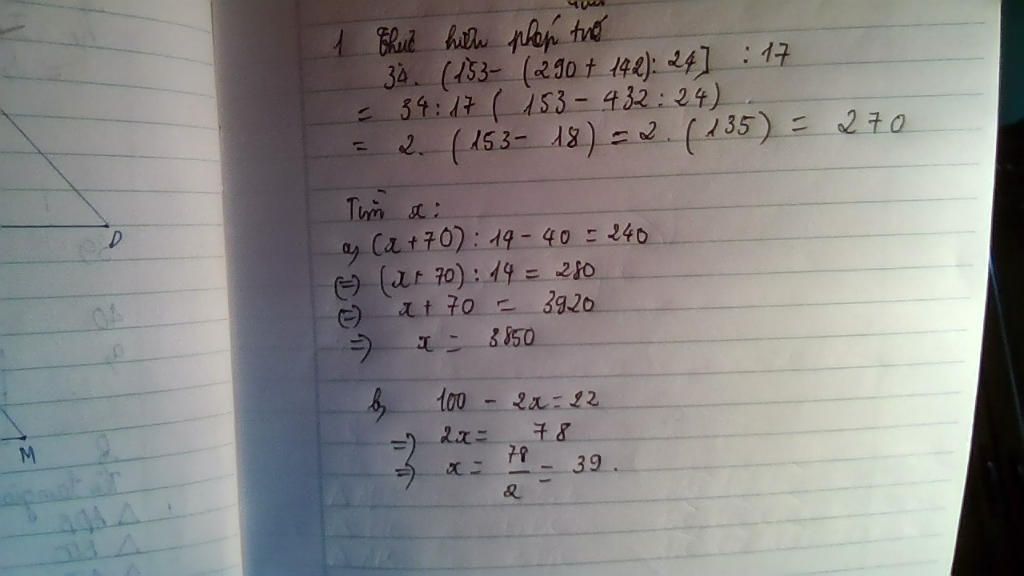 1 Thực hiện phép trố
34. (153- (290+ 142): 24] : 17
= 34:17 ( 153 - 432 : 24)
= 2. (153- 18) = 2. (135) = 270
Tìm x:
a, (x+70) : 14 - 40 = 240
(=) (x+ 70) : 14 = 280
(=) x+ 70 = 3920
=) x = 3850
b, 100 - 2x = 22
=) 2x = 78
=) x = 78/2 = 39.
D
M